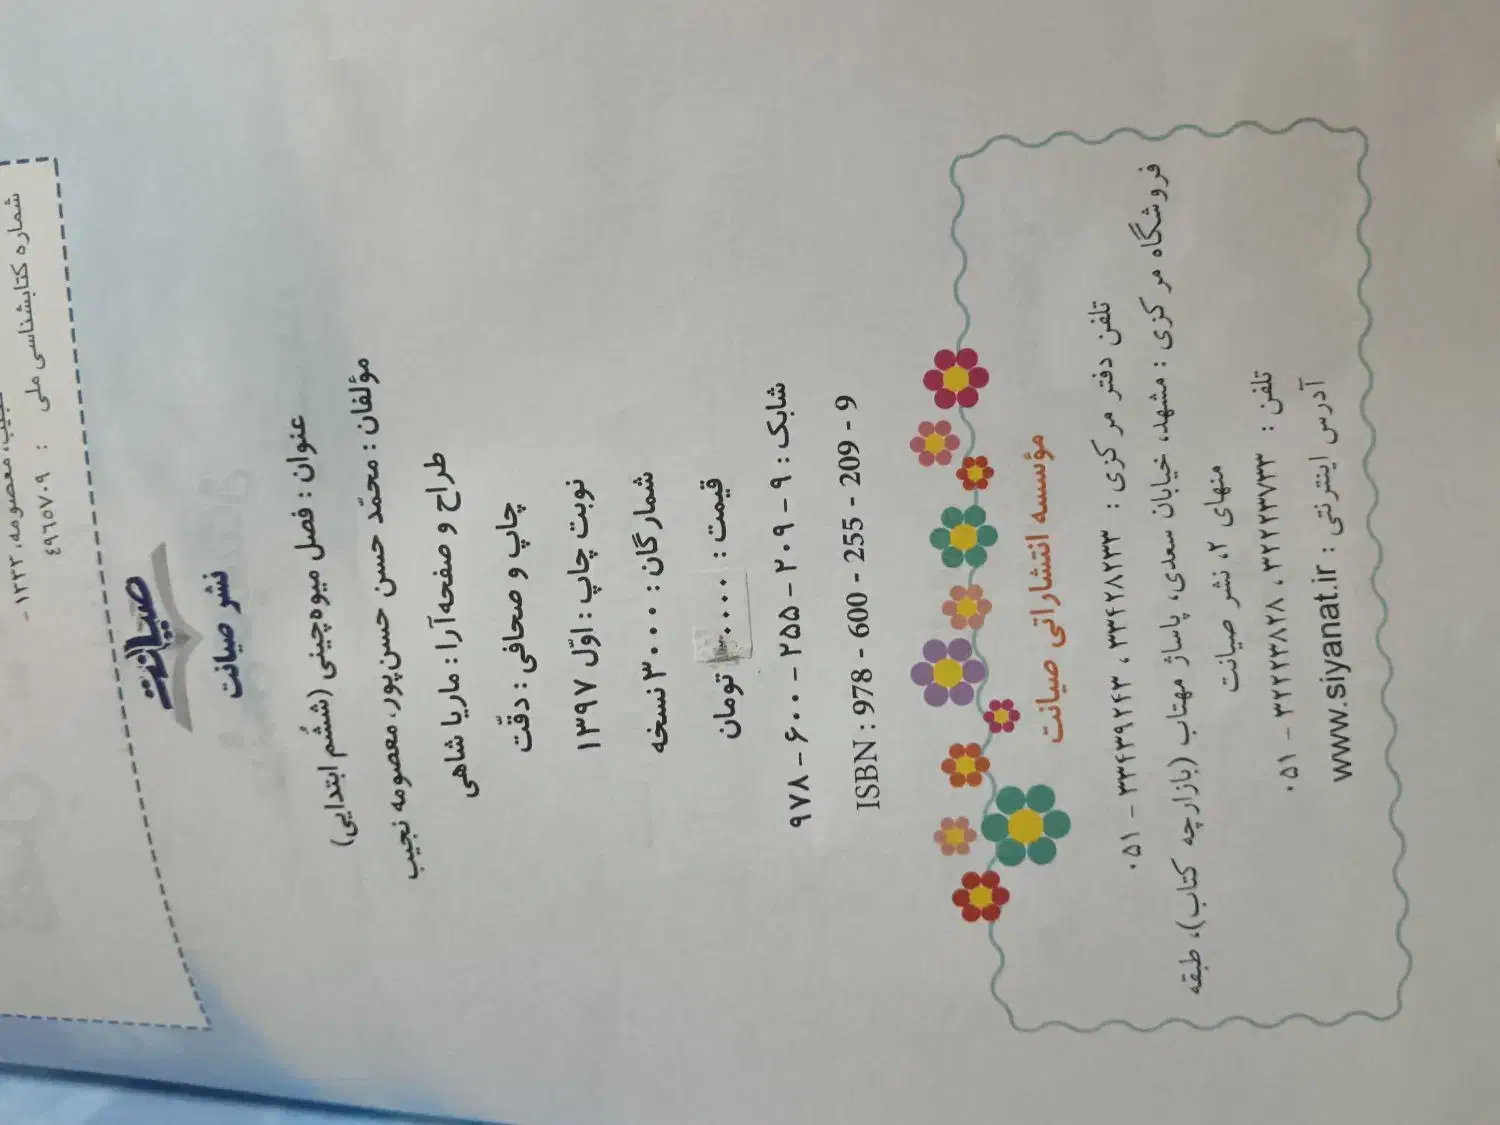 شماره کتابشناسی ملی : ٤٩٦٥٧٠٩
صیانت
نشر صیانت
عنوان : فصل میوه‌چینی (ششُم ابتدایی)
مؤلفان : محمّد حسن حسن‌پور، معصومه نجیب
طراح و صفحه‌آرا : ماریا شاهی
چاپ و صحافی : دقّت
نوبت چاپ : اوّل ۱۳۹۷
شمارگان : ۳۰۰۰ نسخه
قیمت : تومان
شابک : ۹ - ۲۰۹ - ۲۵۵ - ۶۰۰ - ۹۷۸
ISBN : 978 - 600 - 255 - 209 - 9
مؤسسه انتشاراتی صیانت
تلفن دفتر مرکزی : ۳۳۴۲۸۲۳۳ ، ۳۳۴۳۹۲۴۳ - ۰۵۱
فروشگاه مرکزی : مشهد، خیابان سعدی، پاساژ مهتاب (بازارچه کتاب)، طبقه
منهای ۲، نشر صیانت
تلفن : ۳۲۲۲۳۷۳۳ ، ۳۲۲۲۳۸۲۸ - ۰۵۱
آدرس اینترنتی : www.siyanat.ir